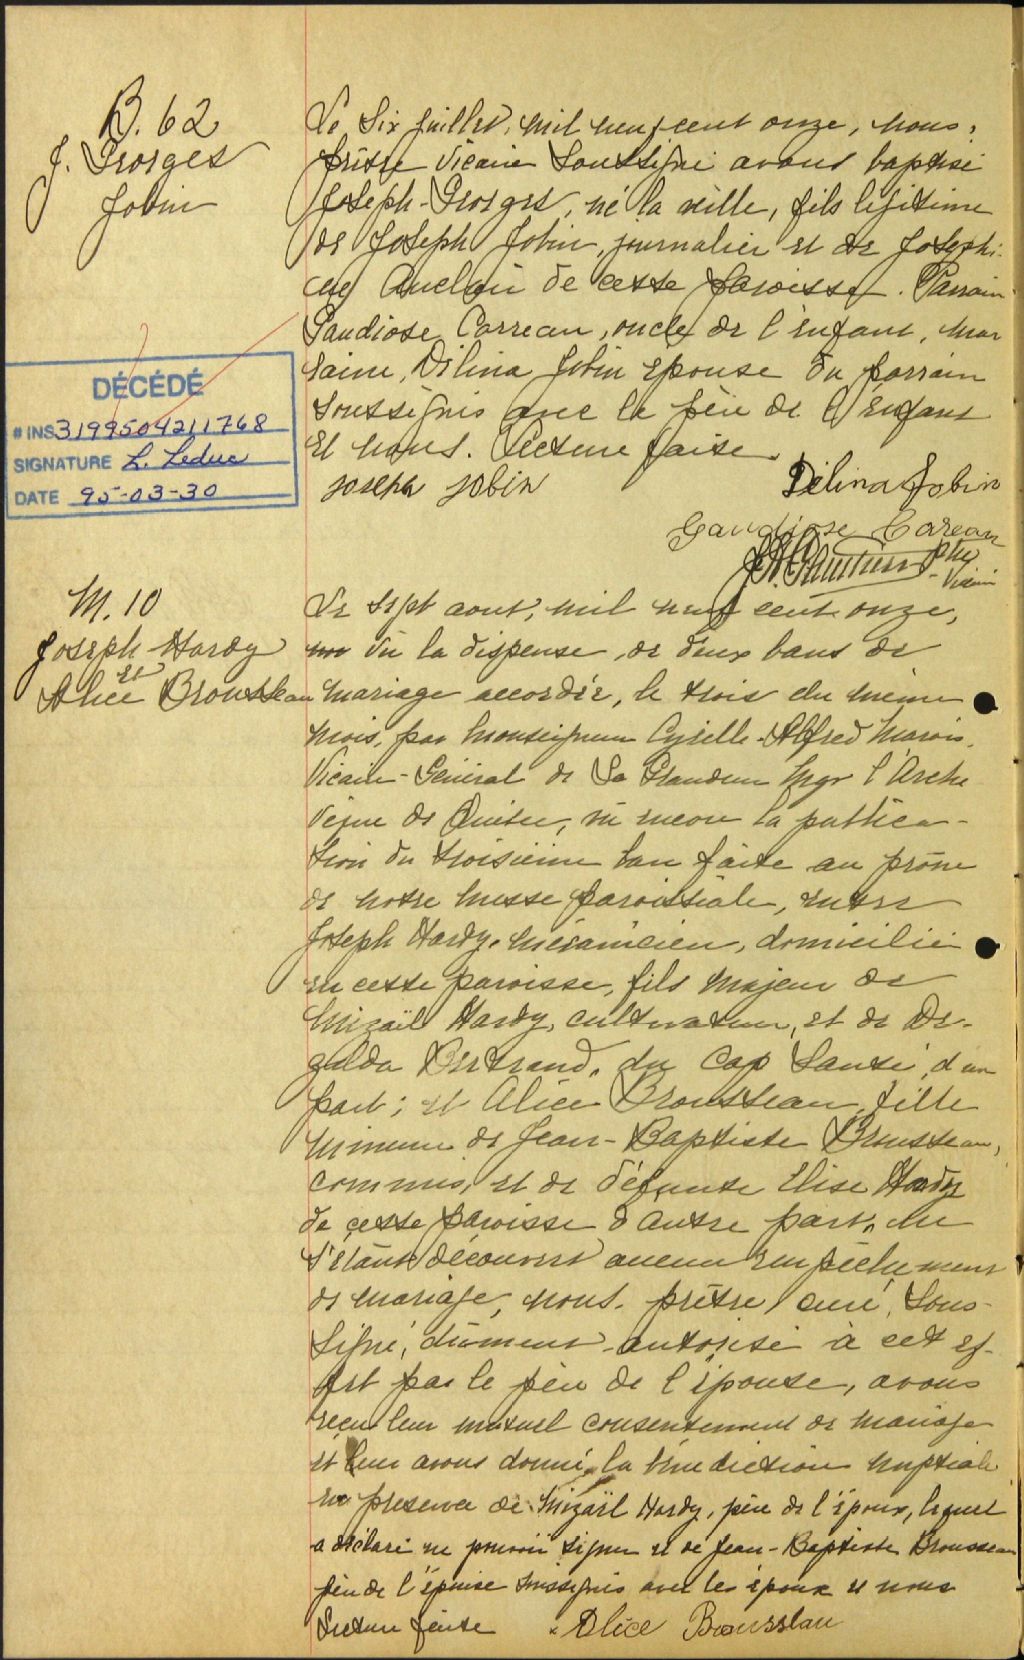 B. 62
J. Georges
Jobin
Le six juillet, mil neuf cent onze, nous,
prêtre vicaire soussigné avons baptisé
Joseph-Georges, né la veille, fils légitime
de Joseph Jobin, journalier et de Josephi-
ne Auclair de cette paroisse. Parrain
Gaudiose Carreau, oncle de l'enfant, mar
raine, Délina Jobin épouse du parrain
soussignés avec le père de l'enfant
et nous. Lecture faite.
Joseph Jobin
Délina Jobin
Gaudiose Careau
Ptre
Vicaire
DÉCÉDÉ
# INS 3199504211768
SIGNATURE L. Leduc
DATE 95-03-30
M. 10
Joseph Hardy
et
Alice Brousseau
Le sept aout, mil neuf cent onze,
vu la dispense de deux bans de
mariage accordée, le trois du même
mois, par Monseigneur Cyrille-Alfred Marois,
Vicaire-Général de Sa Grandeur Mgr l'Arche
vêque de Québec, vu encore la publica-
tion du troisième ban faite au prône
de notre messe paroissiale, entre
Joseph Hardy, mécanicien, domicilié
en cette paroisse, fils majeur de
Mizaël Hardy, cultivateur, et de
Bertrand, du Cap Santé, d'une
part; et Alice Brousseau, fille
mineure de Jean-Baptiste Brousseau,
commis, et de défunte Elise Hardy
de cette paroisse d'autre part, ne
s'étant découvert aucun empêchement
de mariage, nous, prêtre, curé, sous-
signé, dûment autorisé à cet ef-
fet par le père de l'épouse, avons
reçu leur mutuel consentement de mariage
et leur avons donné la bénédiction nuptiale
en présence de Mizaël Hardy, père de l'époux, lequel
a déclaré ne pouvoir signer et de Jean-Baptiste Brousseau
père de l'épouse soussignés avec les époux et nous
Lecture faite
Alice Brousseau